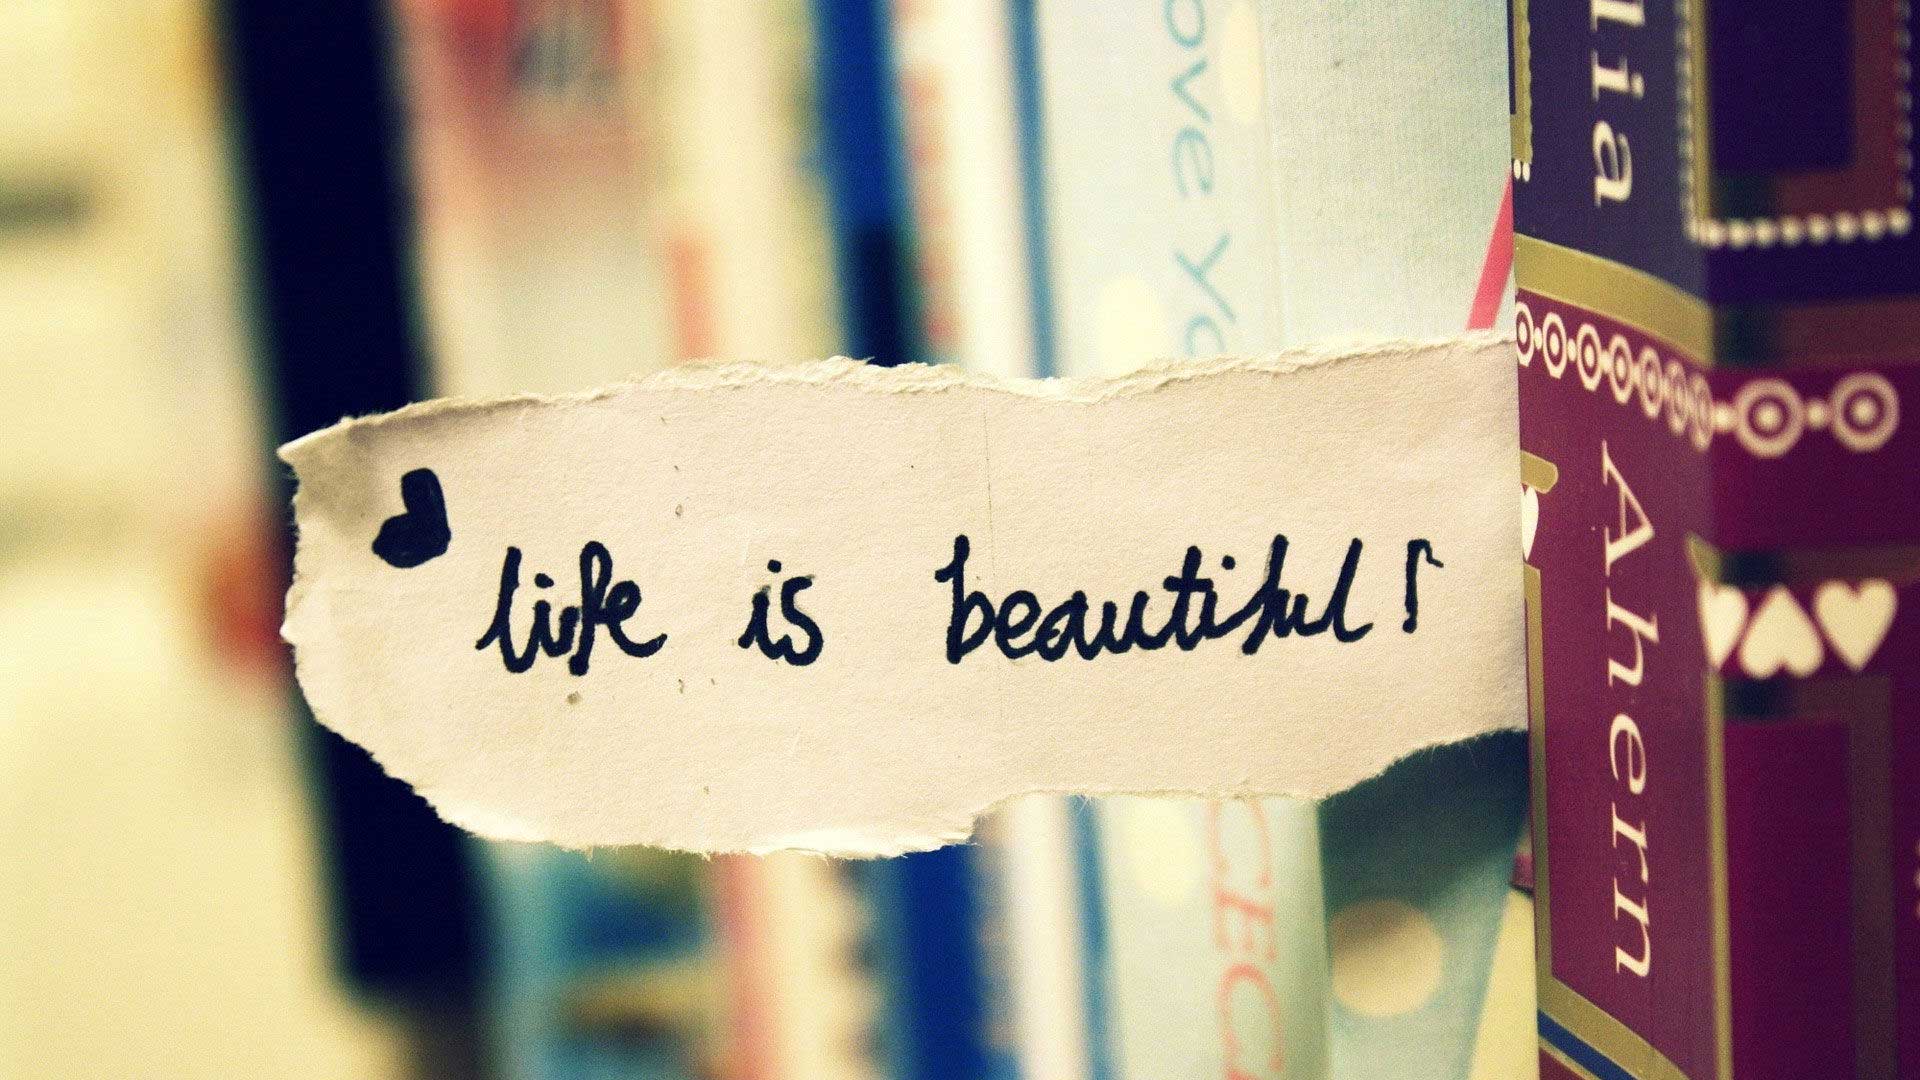 life is beautiful!
ove yo
lia
Ahern
CECE